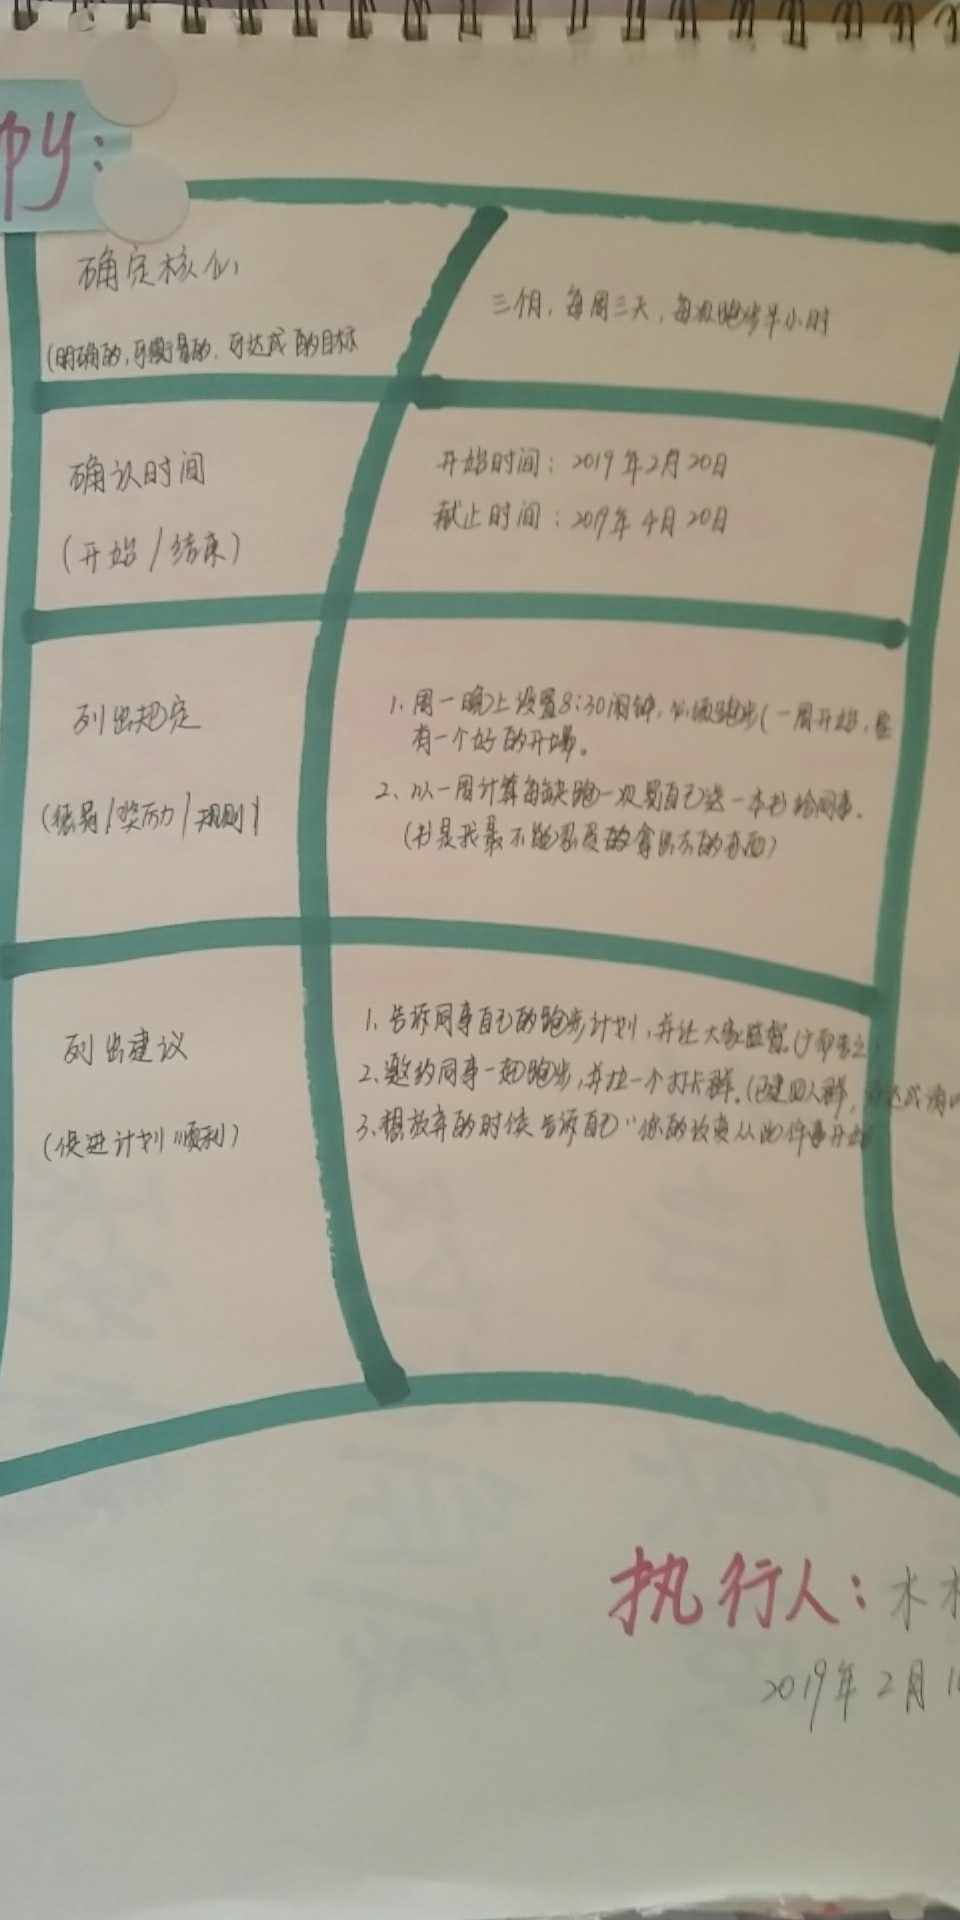 py:
确定核心
(明确的,可衡量的,可达成的目标
三个月,每周三天,每次跑步半小时
确认时间
(开始/结束)
开始时间:2019年2月20日
截止时间:2019年4月20日
列出规定
(惩罚/奖励/规则)
1、周一晚上设置8:30闹钟,必须跑步(一周开始,
有一个好的开端。
2、以一周计算每缺跑一次罚自己送一本书给同事。
(书是我最不能 的拿出去的东西)
列出建议
(促进计划顺利)
1、告诉同事自己的跑步计划,并让大家监督。
2、邀约同事一起跑步,并拉一个打卡群。(已建四人群,
3、想放弃的时候告诉自己"你的故事从此件事开始
执行人:木
2019年2月1